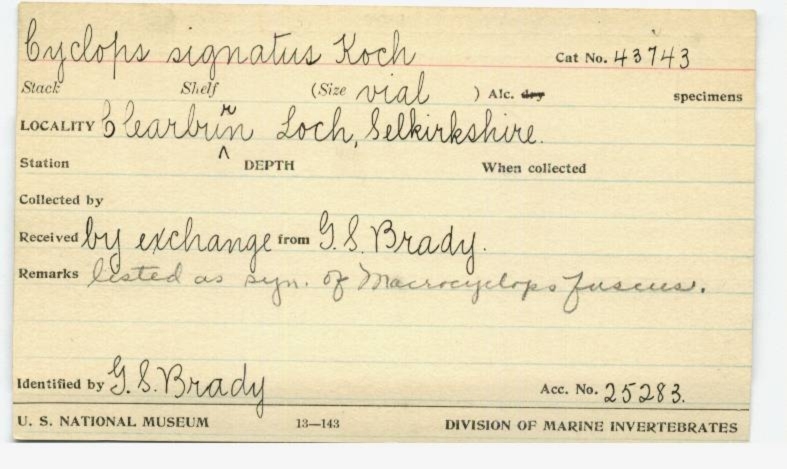 Cyclops signatus Koch Cat No. 43743
Stack Shelf (Size vial ) Alc. dry specimens
LOCALITY Clearburn Loch, Selkirkshire.
Station DEPTH When collected
Collected by
Received by exchange from G. S. Brady.
Remarks listed as syn. of Macrocyclops fuscus.
Identified by G. S. Brady Acc. No. 25283.
U. S. NATIONAL MUSEUM 13—143 DIVISION OF MARINE INVERTEBRATES